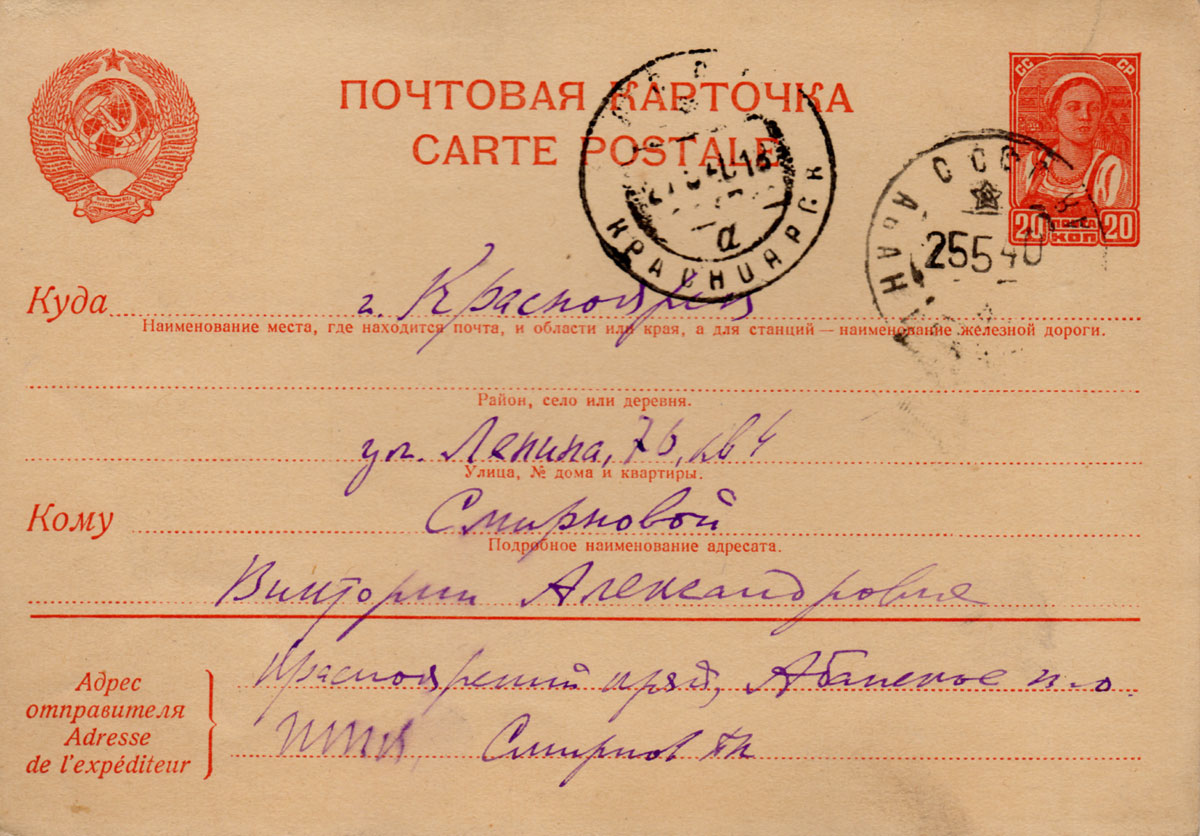 ПОЧТОВАЯ КАРТОЧКА
CARTE POSTALE
СС СР
20 КОП 20
СССР
КРАСНОЯРСК
а
СССР
АБАН
25 5 40
Куда г. Красноярск
Наименование места, где находится почта, и области или края, а для станций — наименование железной дороги.
Район, село или деревня.
ул. Ленина, 76, кв 4
Улица, № дома и квартиры.
Кому Смирновой
Подробное наименование адресата.
Виктории Александровне
Адрес отправителя
Adresse de l'expéditeur
Красноярский край, Абанское п-о
Смирнов